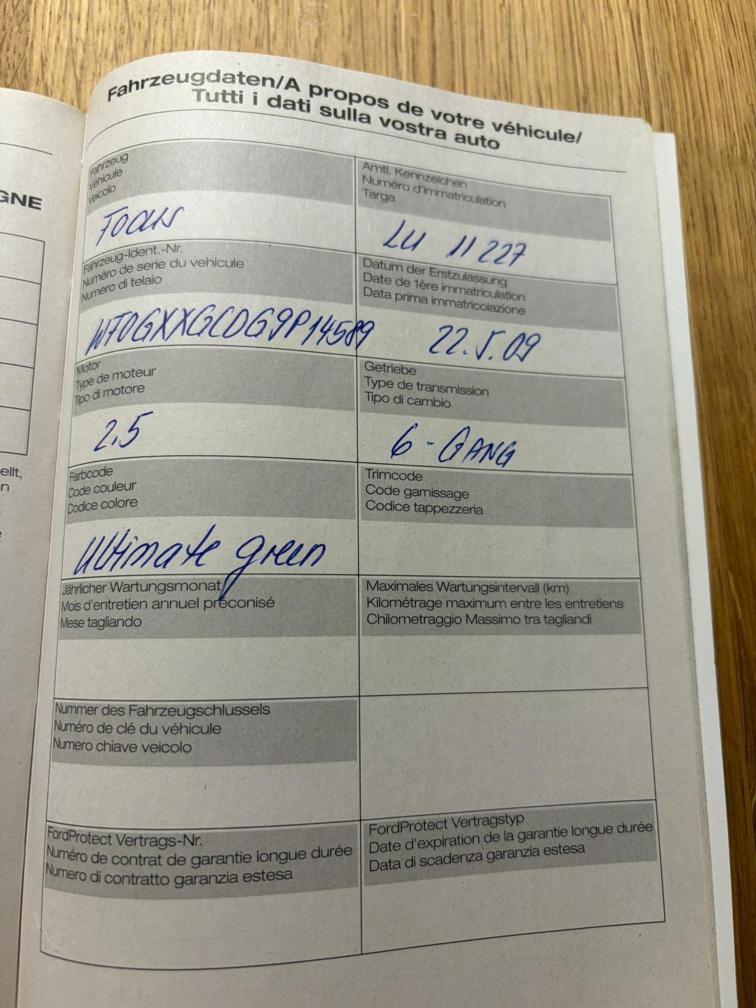 GNE
ellt,
n
Fahrzeugdaten/A propos de votre véhicule/
Tutti i dati sulla vostra auto
Fahrzeug
Véhicule
Veicolo
Focus
Amtl. Kennzeichen
Numéro d'immatriculation
Targa
LU 11 227
Fahrzeug-Ident.-Nr.
Numéro de serie du vehicule
Numero di telaio
WF0GXXGCDG9P14589
Datum der Erstzulassung
Date de 1ère immatriculation
Data prima immatricolazione
22.5.09
Motor
Type de moteur
Tipo di motore
2.5
Getriebe
Type de transmission
Tipo di cambio
6-GANG
Farbcode
Code couleur
Codice colore
Ultimate green
Trimcode
Code garnissage
Codice tappezzeria
Jährlicher Wartungsmonat
Mois d'entretien annuel préconisé
Mese tagliando
Maximales Wartungsintervall (km)
Kilométrage maximum entre les entretiens
Chilometraggio Massimo tra tagliandi
Nummer des Fahrzeugschlussels
Numéro de clé du véhicule
Numero chiave veicolo
FordProtect Vertrags-Nr.
Numéro de contrat de garantie longue durée
Numero di contratto garanzia estesa
FordProtect Vertragstyp
Date d'expiration de la garantie longue durée
Data di scadenza garanzia estesa